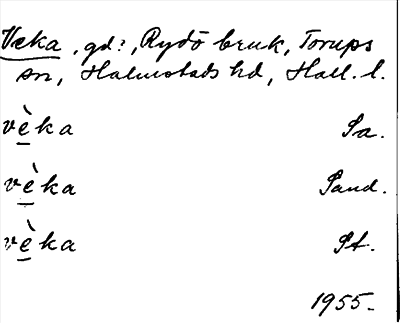 Veka, gd?, Rydö bruk, Torups
sn, Halmstads hd, Hall. l.
vè̱ka Sa.
vè̱ka Sand.
vè̱ka St.
1955.